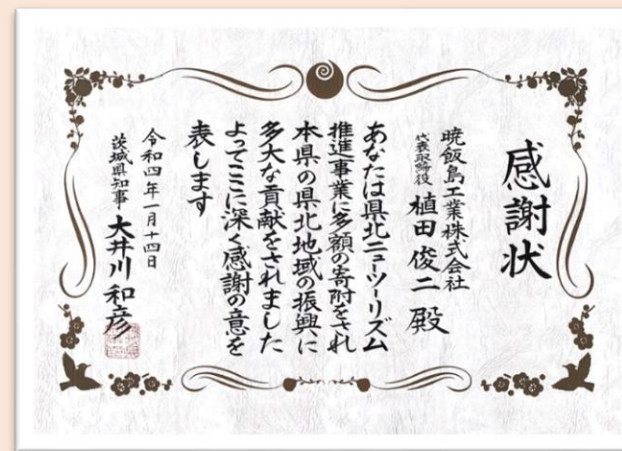 感謝状
暁飯島工業株式会社
代表取締役 植田俊二殿
あなたは県北ニューツーリズム
推進事業に多額の寄附をされ
本県の県北地域の振興に
多大な貢献をされました
よってここに深く感謝の意を
表します
令和四年一月十四日
茨城県知事 大井川和彦